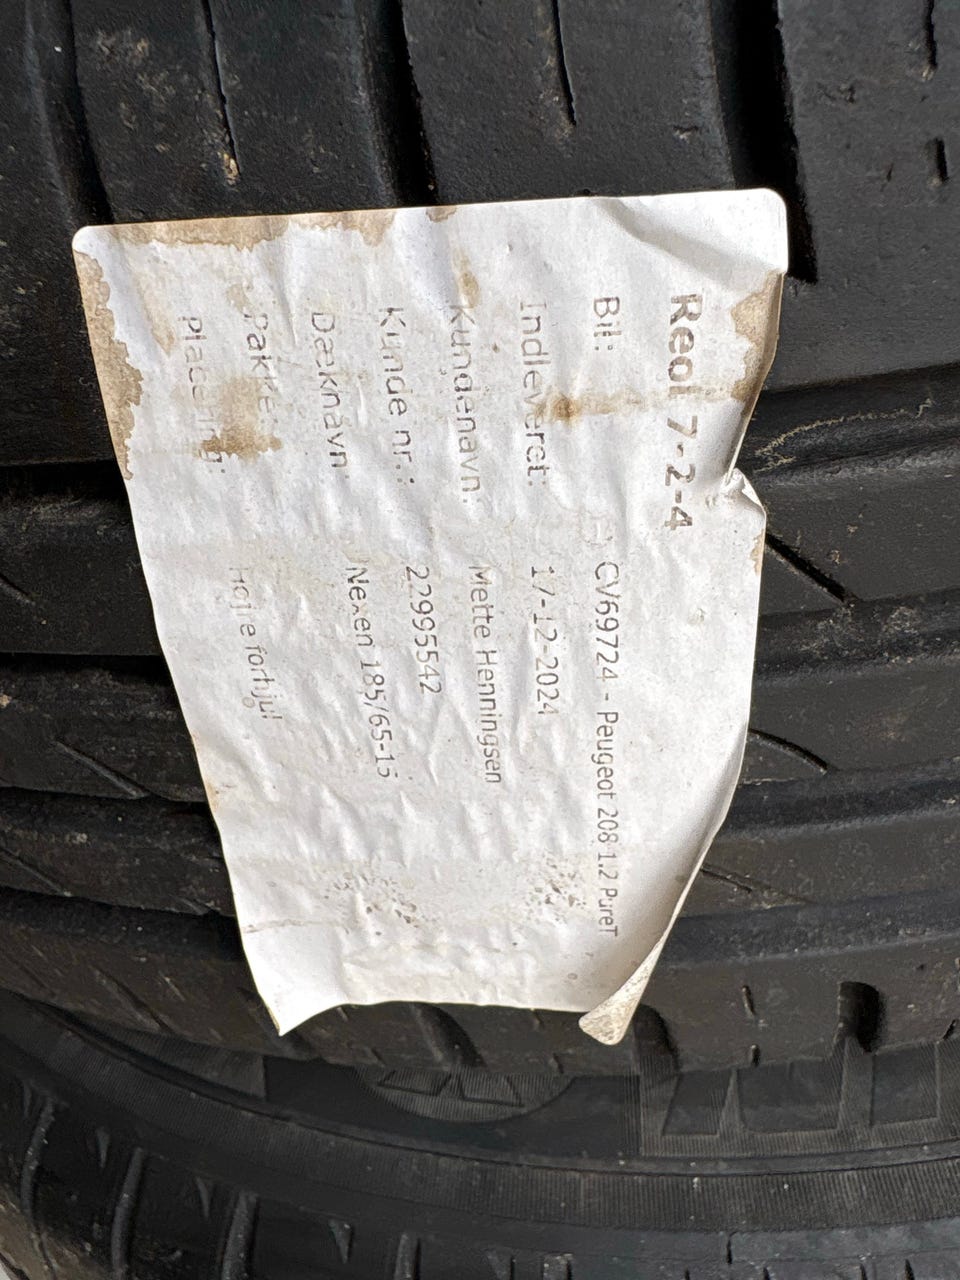 Reol 7-2-4
Bil: CV69724 - Peugeot 208 1.2 PureT
Indleveret: 17-12-2024
Kundenavn: Mette Henningsen
Kunde nr.: 22995542
Dæknavn: Nexen 185/65-15
Pakke:
Placering: Højre forhjul